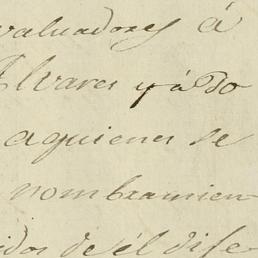 valuadores á
Alvares y á Do
aquienes se
nombramien
idos de él dise